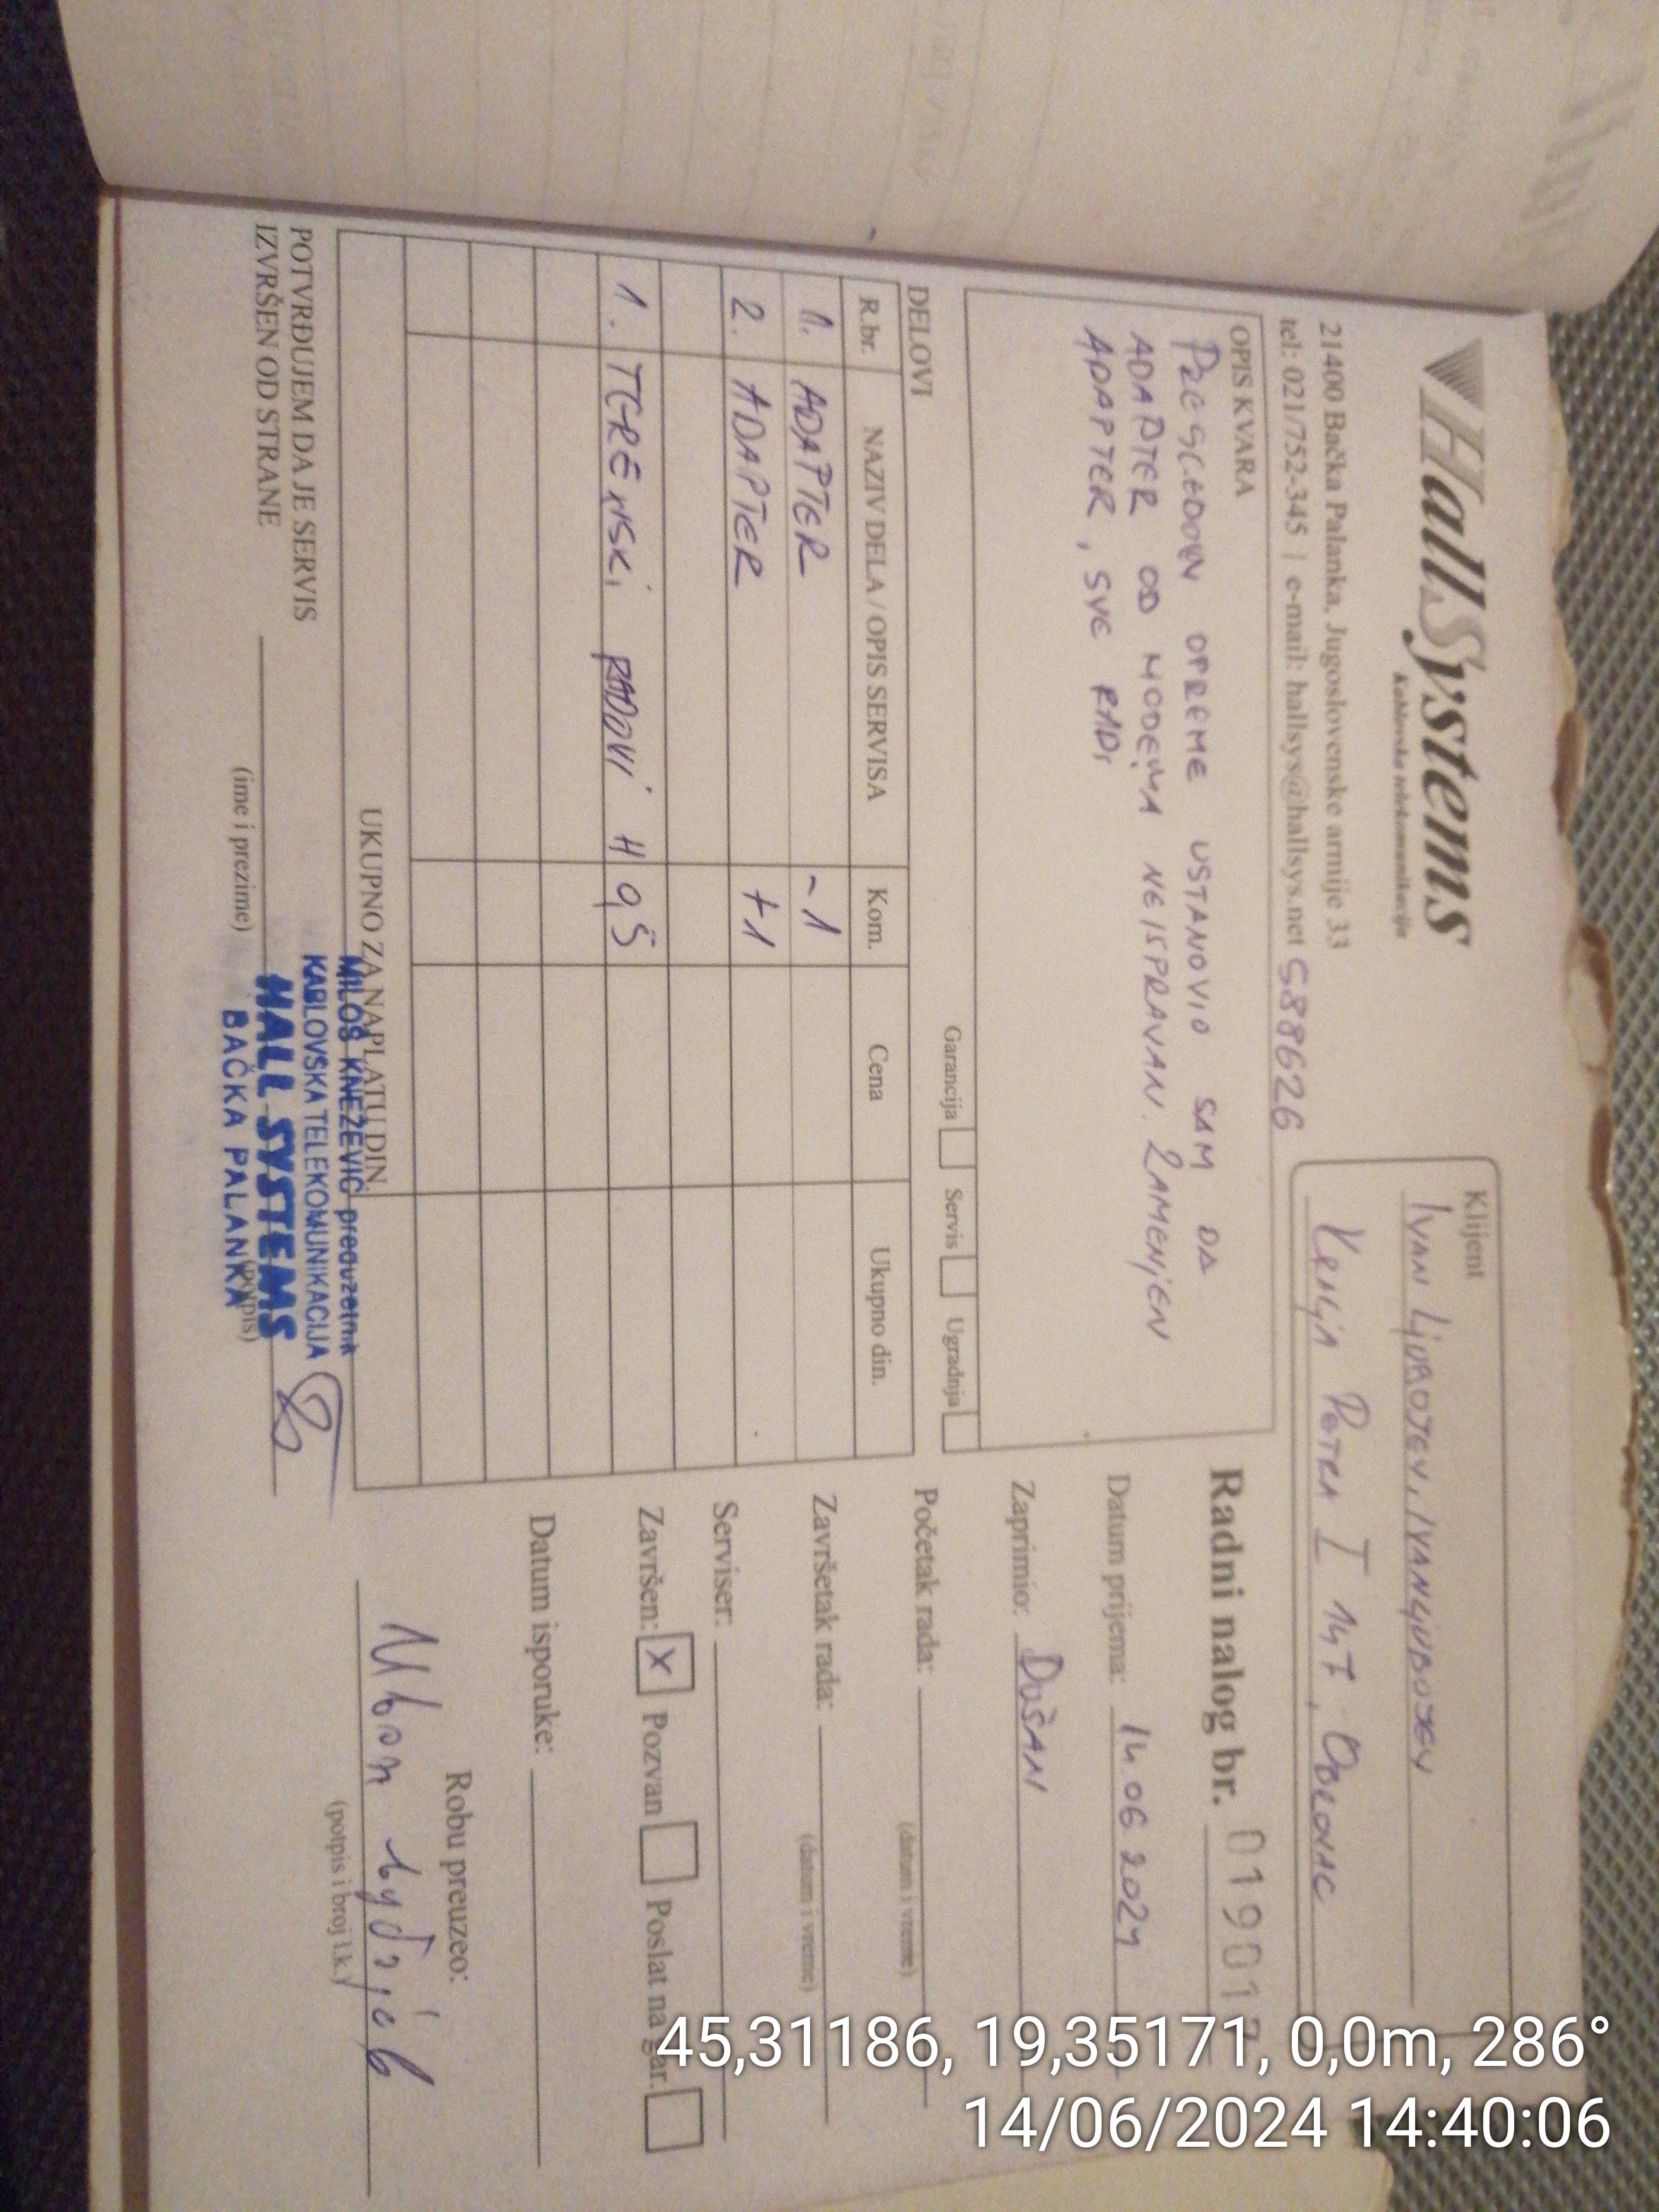 HallSystems
Kablovske telekomunikacije
21400 Bačka Palanka, Jugoslovenske armije 33
tel: 021/752-345 | e-mail: hallsys@hallsys.net 588626
Klijent
IVAN LJUBOJEV, IVANLJUBOJEV
KRALJA PETRA I 147, OBROVAC
OPIS KVARA
PREGLEDOM OPREME USTANOVIO SAM DA
ADAPTER OD MODEMA NEISPRAVAN. ZAMENJEN
ADAPTER, SVE RADI
Garancija Servis Ugradnja
DELOVI
R.br. NAZIV DELA / OPIS SERVISA Kom. Cena Ukupno din.
1. ADAPTER -1
2. ADAPTER +1
1. TERENSKI RADOVI H 0,5
UKUPNO ZA NAPLATU DIN.
POTVRĐUJEM DA JE SERVIS
IZVRŠEN OD STRANE
(ime i prezime) (potpis)
MILOŠ KNEŽEVIĆ preduzetnik
KABLOVSKA TELEKOMUNIKACIJA
HALL SYSTEMS
BAČKA PALANKA
Radni nalog br. 01901
Datum prijema: 14 06 2024
Zaprimio: DUŠAN
Početak rada:
(datum i vreme)
Završetak rada:
(datum i vreme)
Serviser:
Završen: X Pozvan Poslat na gar.
Datum isporuke:
Robu preuzeo:
(potpis i broj l.k.)
45,31186, 19,35171, 0,0m, 286°
14/06/2024 14:40:06